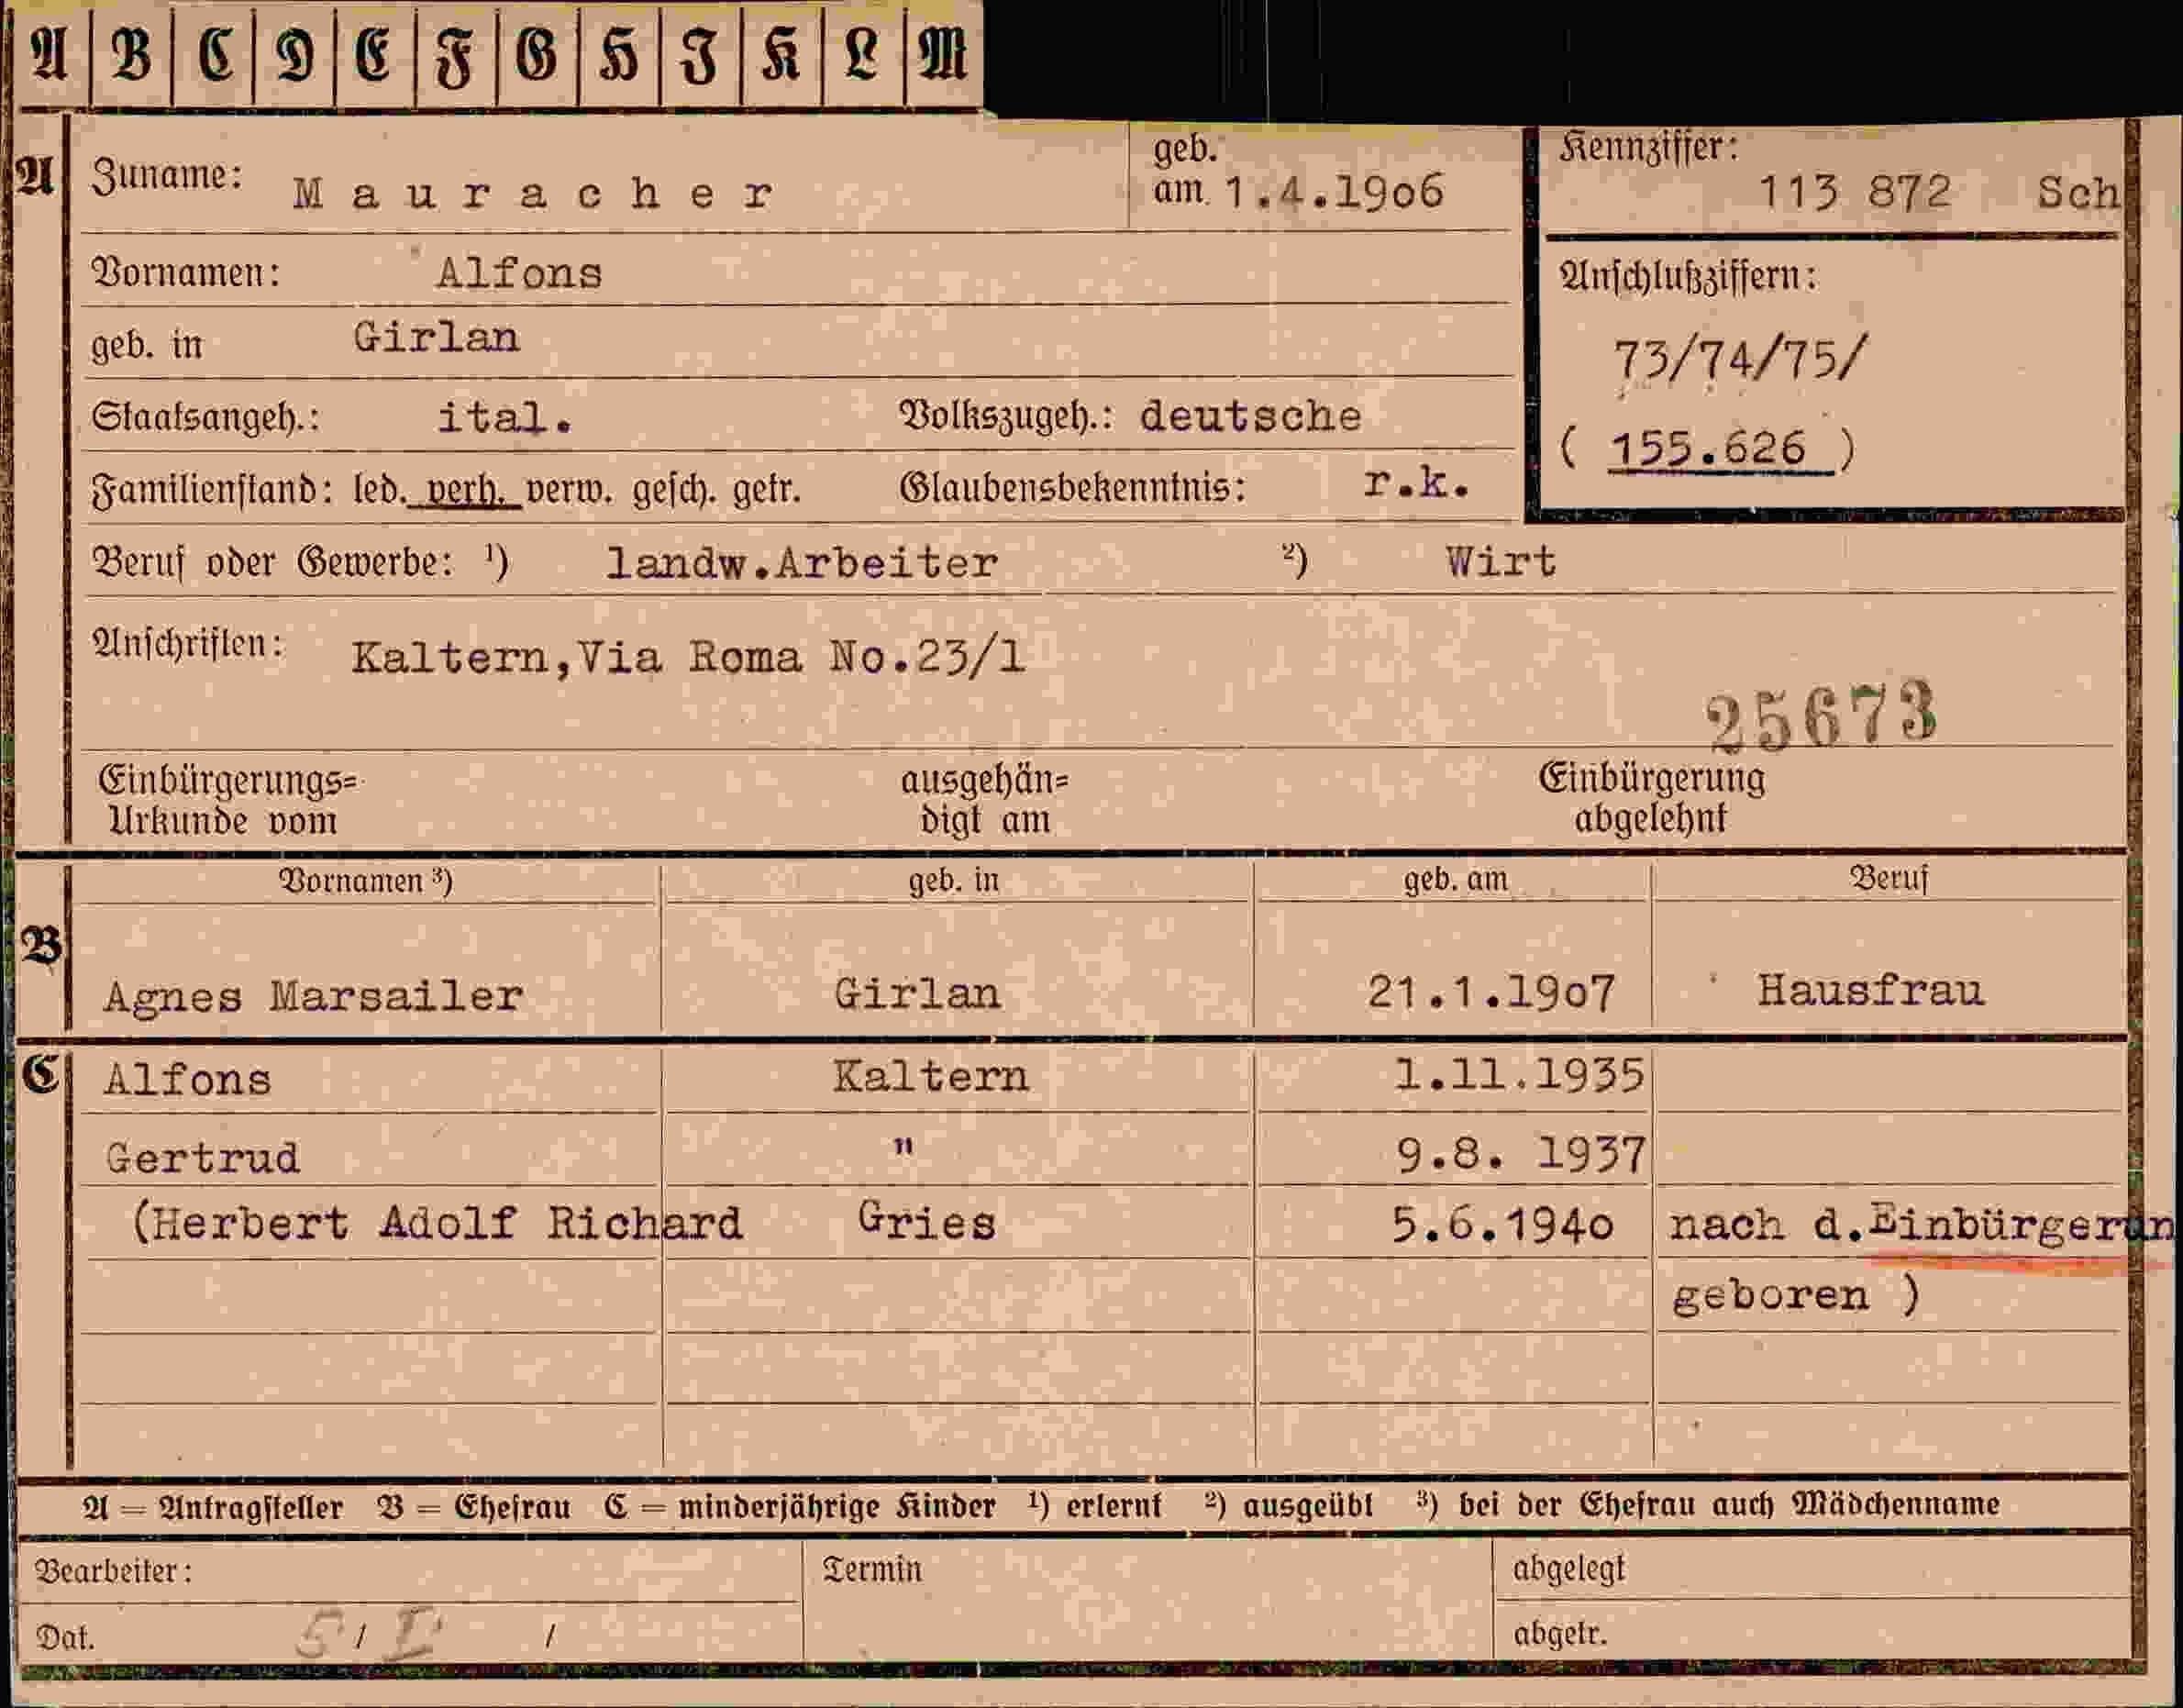 A B C D E F G H J K L M
A Zuname: Mauracher geb. am 1.4.1906 Kennziffer: 113 872 Sch
Vornamen: Alfons Anschlußziffern:
geb. in Girlan 73/74/75/
Staatsangeh.: ital. Volkszugeh.: deutsche ( 155.626 )
Familienstand: led. verh. verw. gesch. getr. Glaubensbekenntnis: r.k.
Beruf oder Gewerbe: ¹) landw.Arbeiter ²) Wirt
Anschriften: Kaltern,Via Roma No.23/1
25673
Einbürgerungs= ausgehän= Einbürgerung
Urkunde vom digt am abgelehnt
Vornamen ³) geb. in geb. am Beruf
B
Agnes Marsailer Girlan 21.1.1907 Hausfrau
C Alfons Kaltern 1.11.1935
Gertrud " 9.8. 1937
(Herbert Adolf Richard Gries 5.6.1940 nach d.Einbürgerun
geboren )
A = Antragsteller B = Ehefrau C = minderjährige Kinder ¹) erlernt ²) ausgeübt ³) bei der Ehefrau auch Mädchenname
Bearbeiter: Termin abgelegt
Dat. / / abgetr.